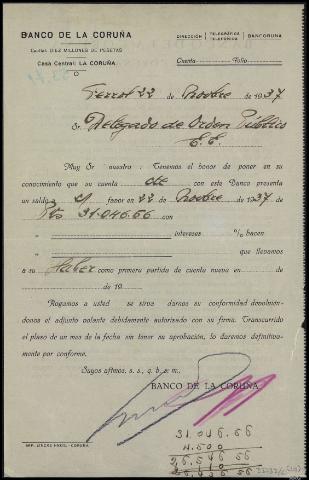 BANCO DE LA CORUÑA
Capital: DIEZ MILLONES DE PESETAS
Casa Central: LA CORUÑA
DIRECCIÓN TELEGRÁFICA TELEFÓNICA BANCORUNA
Cuenta Folio
Ferrol 22 de Novbre de 1937
Sr. Delegado de Orden Público
E. E.
Muy Sr nuestro: Tenemos el honor de poner en
conocimiento que su cuenta cte con este Banco presenta
un saldo a s/ favor en 22 de Novbre de 1937 de
Pts 31.046.66 con
intereses % hacen
que llevamos
a su Haber como primera partida de cuenta nueva en de
de 19
Rogamos a usted se sirva darnos su conformidad devolvién-
donos el adjunto volante debidamente autorizado con su firma. Transcurrido
el plazo de un mes de la fecha sin tener su aprobación, lo daremos definitiva-
mente por conforme.
Suyos aftmos. s. s. q. b. e. m.
BANCO DE LA CORUÑA
31.046.66
4.500
26.546 66
110
26.436 66